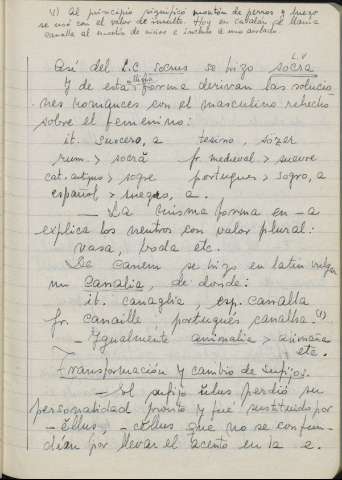 1) Al principio significó montón de perros y luego
se usó con el valor de insulto. Hoy en catalán se llama
canalla al montón de niños e incluso a uno aislado.
Así del L.C. socrus se hizo socra
L.V
Y de esta última forma derivan las solucio
nes romances con el masculino rehecho
sobre el femenino:
it. suocero, a
rum. > socră fr. medieval > suevre
cat. antiguo > sogre portugues > sogro, a
español > suegro, a.
— La misma forma en -a
explica los neutros con valor plural:
vasa, boda etc.
De canem se hizo en latín vulgar
un canalia, de donde:
it. canaglia, esp. canalla
fr. canaille portugués canalha. (1)
— Igualmente animalia > alimaña
etc.
Transformación y cambio de sufijos.
— El sufijo ŭlus perdió su
personalidad pronto y fué sustituido por
- ĕllus, - cĕllus que no se confun-
dían por llevar el acento en la e.